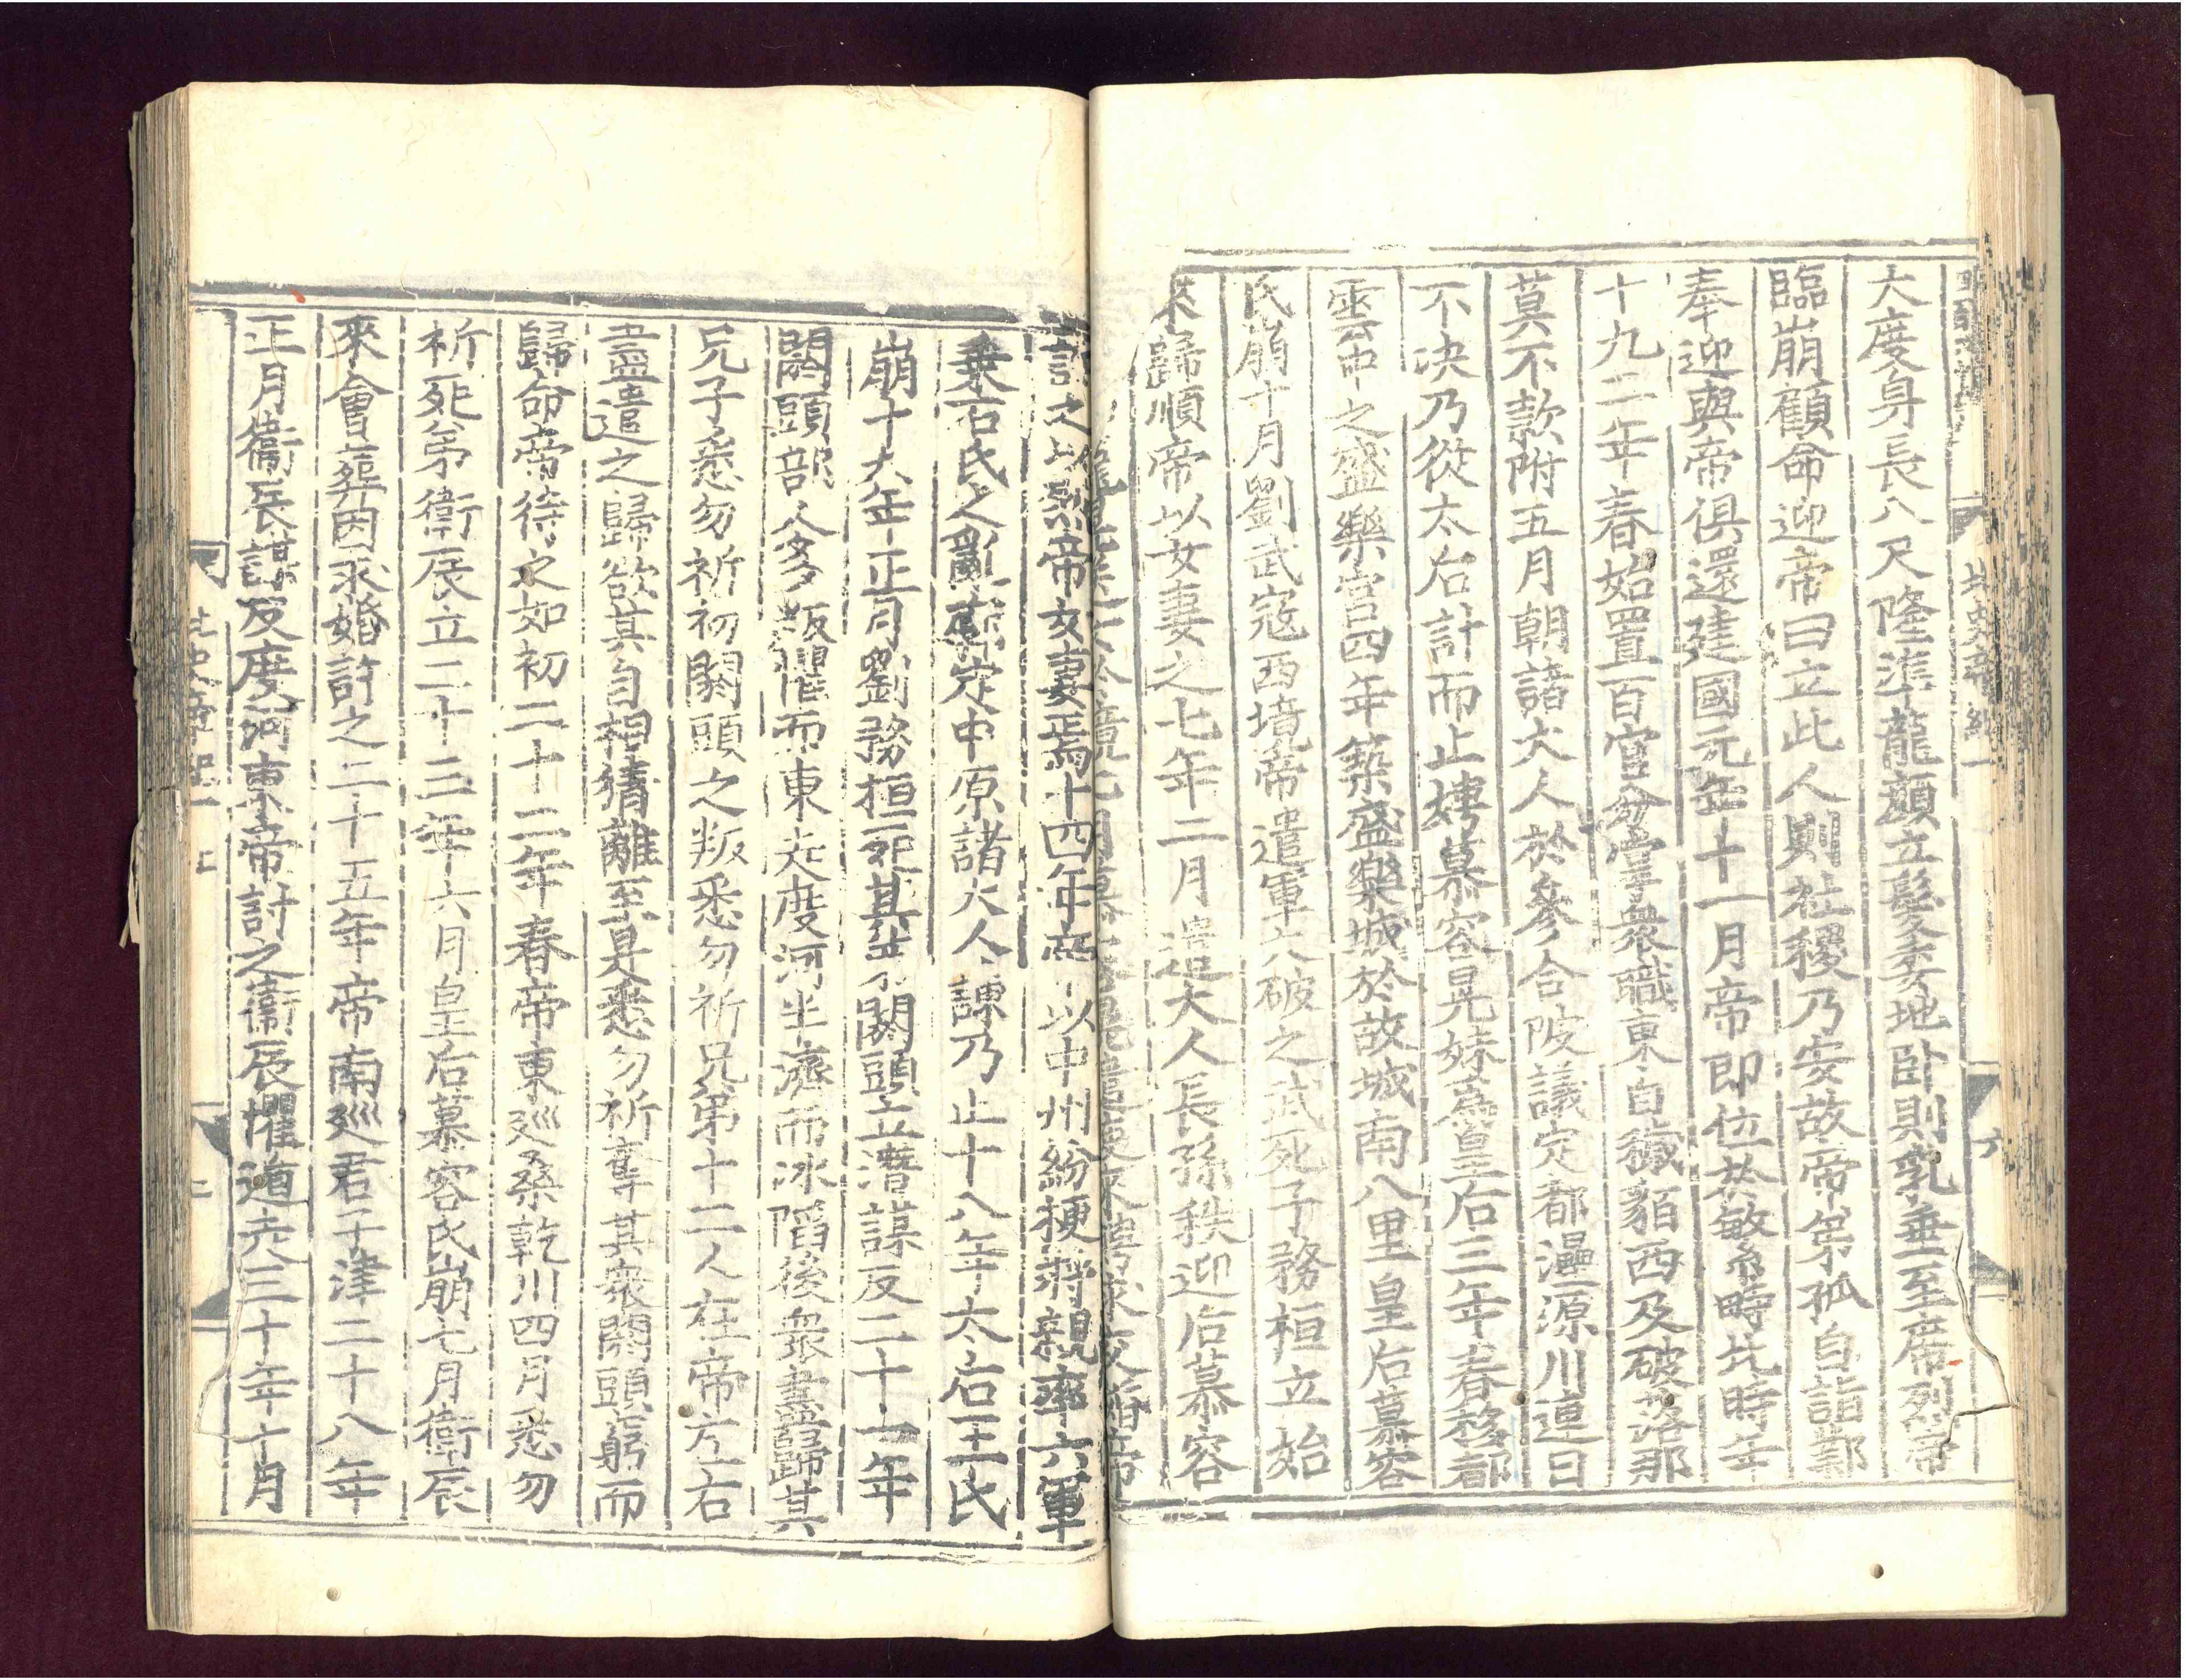 北史帝紀一
六
大度身長八尺隆準龍顔立髮委地卧則乳垂至席列帝
臨崩顧命迎帝曰立此人則社稷乃安故帝弟孤自詣鄴
奉迎與帝俱還建國元年十一月帝即位於繁畤北時年
十九二年春始置百官分掌衆職東自穢貊西及破落那
莫不款附五月朝諸大人於參合陂議定都灅源川連日
不决乃從太后計而止娉慕容晃妹爲皇后三年春移都
雲中之盛樂宫四年築盛樂城於故城南八里皇后慕容
氏崩十月劉武寇西境帝遣軍大破之武死子務桓立始
來歸順帝以女妻之七年二月遣大人長孫秩迎后慕容
討之以烈帝女妻焉十四年帝以中州紛梗將親率六軍
乗石氏之亂廓定中原諸大人諫乃止十八年太后王氏
崩十九年正月劉務桓死其弟閼頭立潜謀反二十一年
閼頭部人多叛懼而東走度河半濟而冰陷後衆盡歸其
兄子悉勿祈初閼頭之叛悉勿祈兄弟十二人在帝左右
盡遣之歸欲其自相猜離至是悉勿祈奪其衆閼頭窮而
歸命帝待之如初二十二年春帝東巡桑乾川四月悉勿
祈死弟衛辰立二十三年六月皇后慕容氏崩七月衛辰
來會葬因求婚許之二十五年帝南巡君子津二十八年
正月衛辰謀反度河東帝討之衛辰懼遁走三十年十月
北史帝紀一上